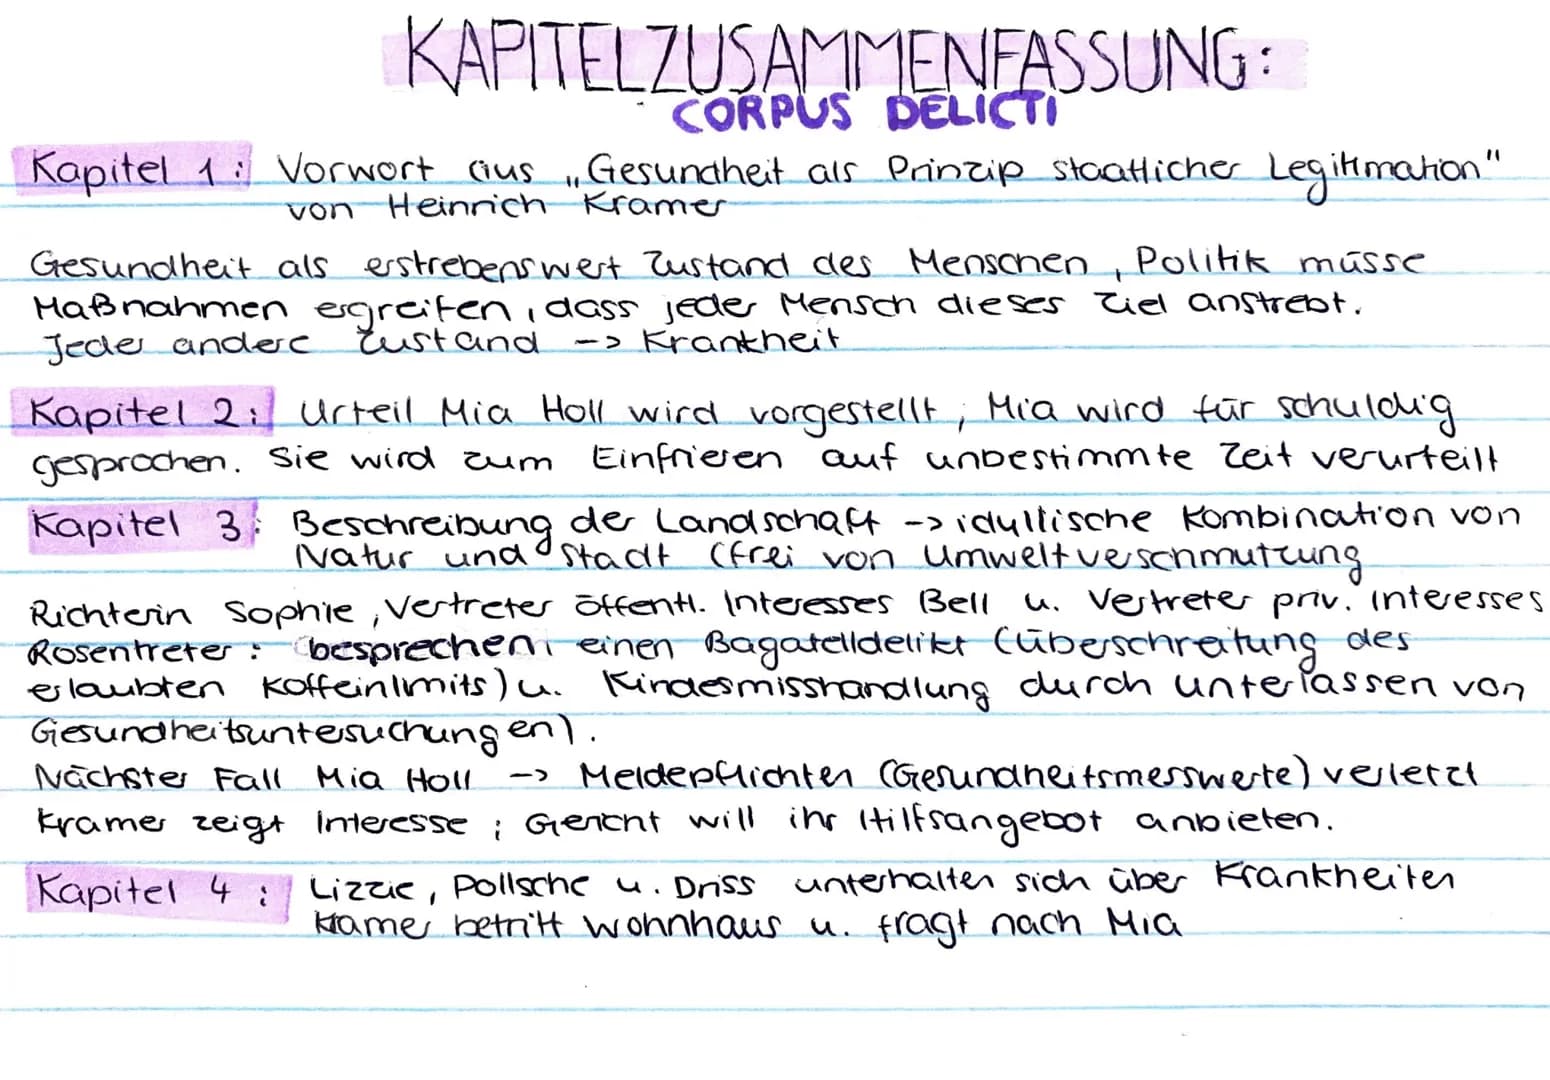 KAPITELZUSAMMENFASSUNG:
CORPUS DELICTI
Kapitel 1: Vorwort aus „Gesundheit als Prinzip staatlicher Legitimation"
von Heinrich Kramer
Gesundheit als erstrebenswert Zustand des Menschen, Politik müsse
Maßnahmen ergreifen, dass jeder Mensch dieses Ziel anstrebt.
Jeder andere Zustand -> Krankheit
Kapitel 2: Urteil Mia Holl wird vorgestellt, Mia wird für schuldig
gesprochen. Sie wird zum Einfrieren auf unbestimmte Zeit verurteilt
Kapitel 3: Beschreibung der Landschaft -> idyllische Kombination von
Natur und Stadt (frei von Umweltverschmutzung
Richterin Sophie, Vertreter öffentl. Interesses Bell u. Vertreter priv. Interesses
Rosentreter: besprechen einen Bagatelldelikt (Überschreitung des
erlaubten Koffeinlimits) u. Kindesmisshandlung durch unterlassen von
Gesundheitsuntersuchungen).
Nächster Fall Mia Holl -> Meldepflichten (Gesundheitsmesswerte) verletzt
Kramer zeigt Interesse; Gericht will ihr Hilfsangebot anbieten.
Kapitel 4: Lizzie, Pollsche u. Driss unterhalten sich über Krankheiten
Kramer betritt Wohnhaus u. fragt nach Mia